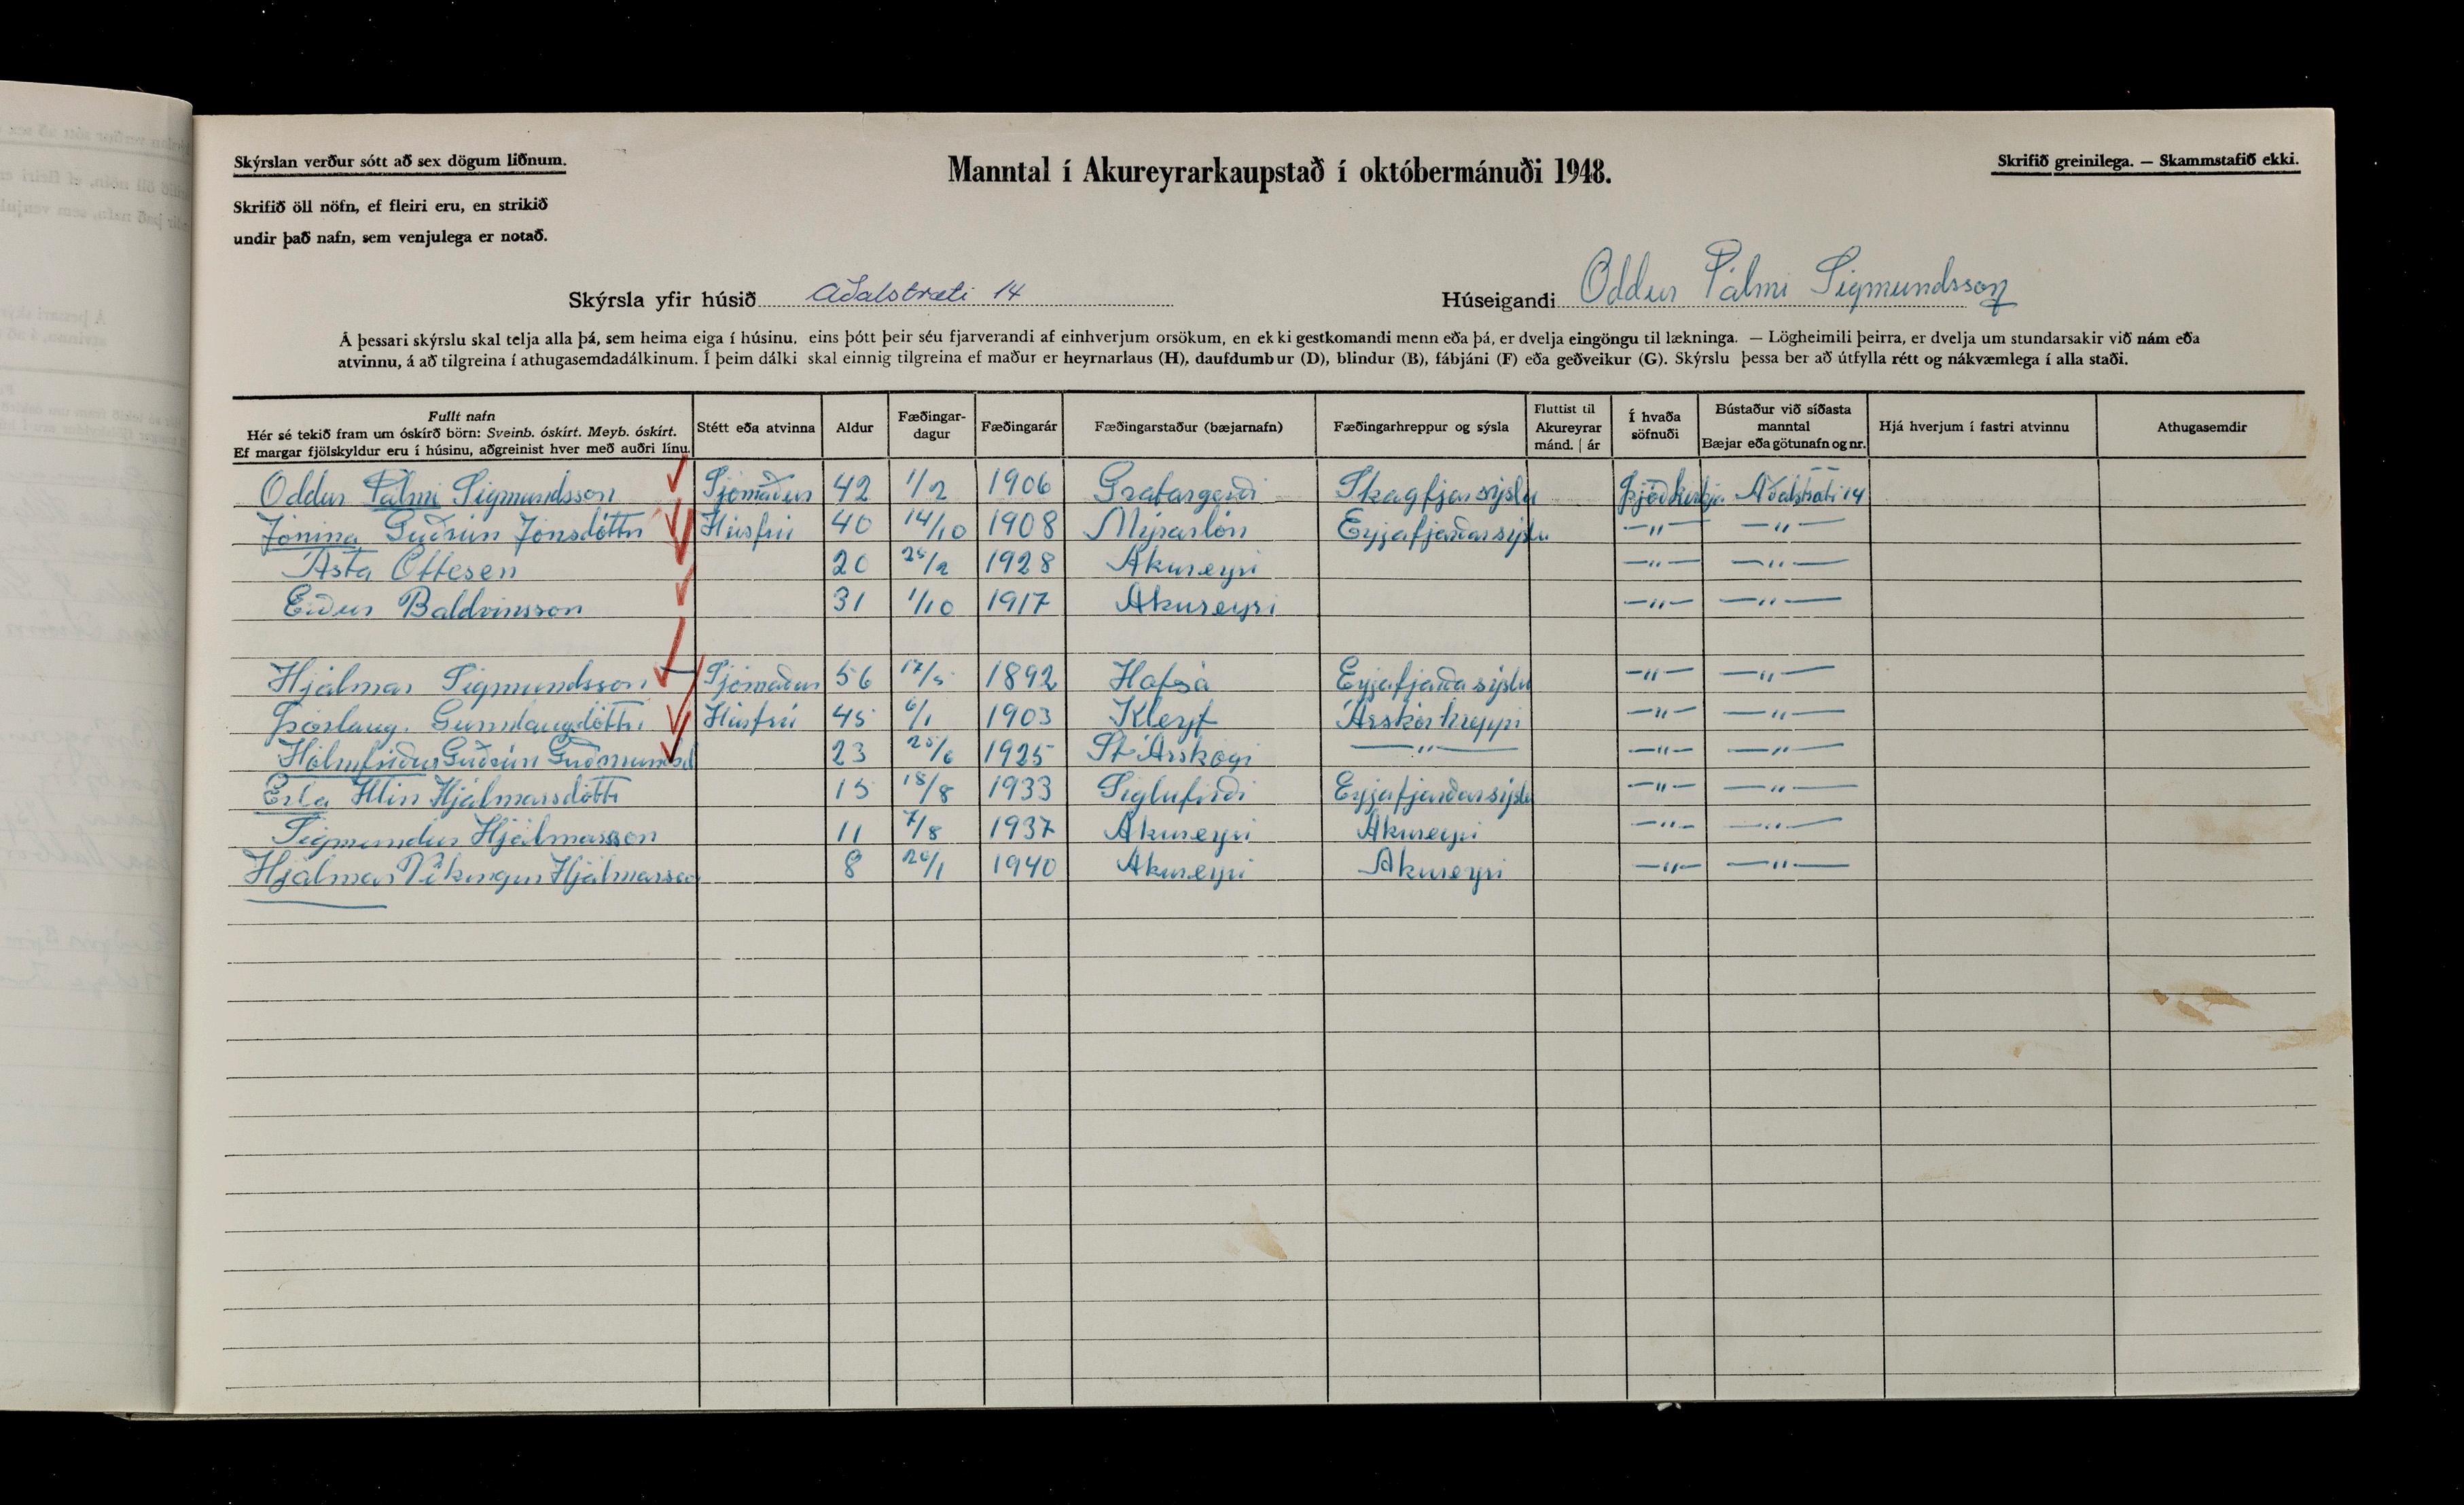 Skýrslan verður sótt að sex dögum liðnum.
Manntal í Akureyrarkaupstað í októbermánuði 1948.
Skrifið greinilega. — Skammstafið ekki.
Skrifið öll nöfn, ef fleiri eru, en strikið
undir það nafn, sem venjulega er notað.
Skýrsla yfir húsið Aðalstræti 14
Húseigandi Oddur Pálmi Sigmundsson
Á þessari skýrslu skal telja alla þá, sem heima eiga í húsinu, eins þótt þeir séu fjarverandi af einhverjum orsökum, en ekki gestkomandi menn eða þá, er dvelja eingöngu til lækninga. — Lögheimili þeirra, er dvelja um stundarsakir við nám eða
atvinnu, á að tilgreina í athugasemdadálkinum. Í þeim dálki skal einnig tilgreina ef maður er heyrnarlaus (H), daufdumbur (D), blindur (B), fábjáni (F) eða geðveikur (G). Skýrslu þessa ber að útfylla rétt og nákvæmlega í alla staði.
Fullt nafn
Hér sé tekið fram um óskírð börn: Sveinb. óskírt. Meyb. óskírt.
Ef margar fjölskyldur eru í húsinu, aðgreinist hver með auðri línu.
Stétt eða atvinna
Aldur
Fæðingar-
dagur
Fæðingarár
Fæðingarstaður (bæjarnafn)
Fæðingarhreppur og sýsla
Fluttist til
Akureyrar
mánd. | ár
Í hvaða
söfnuði
Bústaður við síðasta
manntal
Bæjar eða götunafn og nr.
Hjá hverjum í fastri atvinnu
Athugasemdir
Oddur Pálmi Sigmundsson Sjómaður 42 1/2 1906 Grafargerði Skagfjarsýslu Þjóðkirkju Aðalstræti 14
Jónína Guðrún Jónsdóttir Húsfrú 40 14/10 1908 Mýrarlón Eyjafjarðarsýslu —"— —"—
Ásta Ottesen 20 25/2 1928 Akureyri —"— —"—
Eiður Baldvinsson 31 1/10 1917 Akureyri —"— —"—
Hjálmar Sigmundsson Sjómaður 56 17/5 1892 Hofsá Eyjafjarðasýslu —"— —"—
Þórlaug Gunnlaugdóttir Húsfrú 45 6/1 1903 Kleyf Árskórhreppi —"— —"—
Hólmfríður Guðrún Guðmundsd 23 25/6 1925 St Árskógi —"— —"— —"—
Erla Hlín Hjálmarsdóttir 15 18/8 1933 Siglufirði Eyjafjarðarsýslu —"— —"—
Sigmundur Hjálmarsson 11 7/8 1937 Akureyri Akureyri —"— —"—
Hjálmar Víkingur Hjálmarsson 8 20/1 1940 Akureyri Akureyri —"— —"—